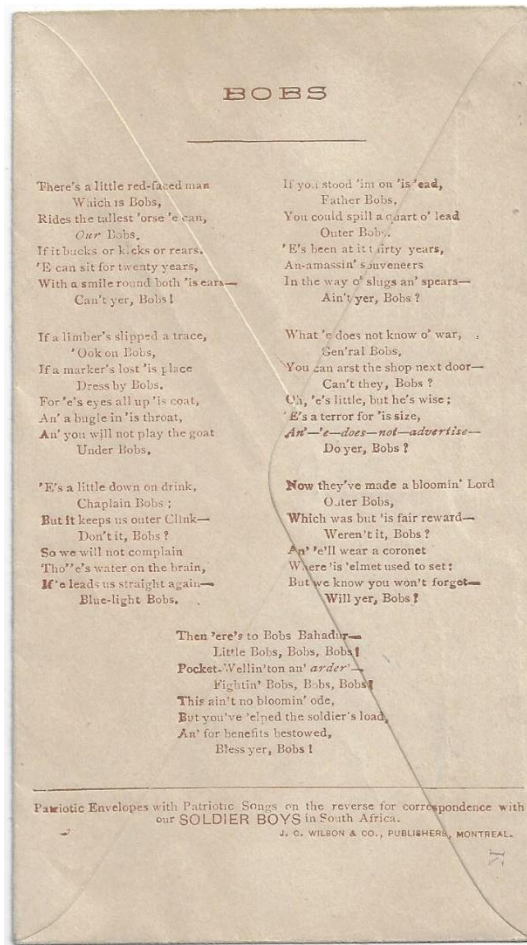 BOBS
There's a little red-faced man
Which is Bobs,
Rides the tallest 'orse 'e can,
Our Bobs.
If it bucks or kicks or rears.
'E can sit for twenty years,
With a smile round both 'is ears—
Can't yer, Bobs!
If a limber's slipped a trace,
'Ook on Bobs,
If a marker's lost 'is place
Dress by Bobs.
For 'e's eyes all up 'is coat,
An' a bugle in 'is throat,
An' you will not play the goat
Under Bobs,
'E's a little down on drink,
Chaplain Bobs;
But it keeps us outer Clink—
Don't it, Bobs?
So we will not complain
Tho' 'e's water on the brain,
If 'e leads us straight again—
Blue-light Bobs.
If you stood 'im on 'is 'ead,
Father Bobs,
You could spill a quart o' lead
Outer Bobs.
'E's been at it thirty years,
An-amassin' souveneers
In the way o' slugs an' spears—
Ain't yer, Bobs?
What 'e does not know o' war,
Gen'ral Bobs,
You can arst the shop next door—
Can't they, Bobs?
Oh, 'e's little, but he's wise;
'E's a terror for 'is size,
An'—'e—does—not—advertise—
Do yer, Bobs?
Now they've made a bloomin' Lord
Outer Bobs,
Which was but 'is fair reward—
Weren't it, Bobs?
An' 'e'll wear a coronet
Where 'is 'elmet used to set:
But we know you won't forget—
Will yer, Bobs?
Then 'ere's to Bobs Bahadur—
Little Bobs, Bobs, Bobs!
Pocket-Wellin'ton an' arder—
Fightin' Bobs, Bobs, Bobs!
This ain't no bloomin' ode,
But you've 'elped the soldier's load,
An' for benefits bestowed,
Bless yer, Bobs!
Patriotic Envelopes with Patriotic Songs on the reverse for correspondence with
our SOLDIER BOYS in South Africa.
J. C. WILSON & CO., PUBLISHERS, MONTREAL.
K